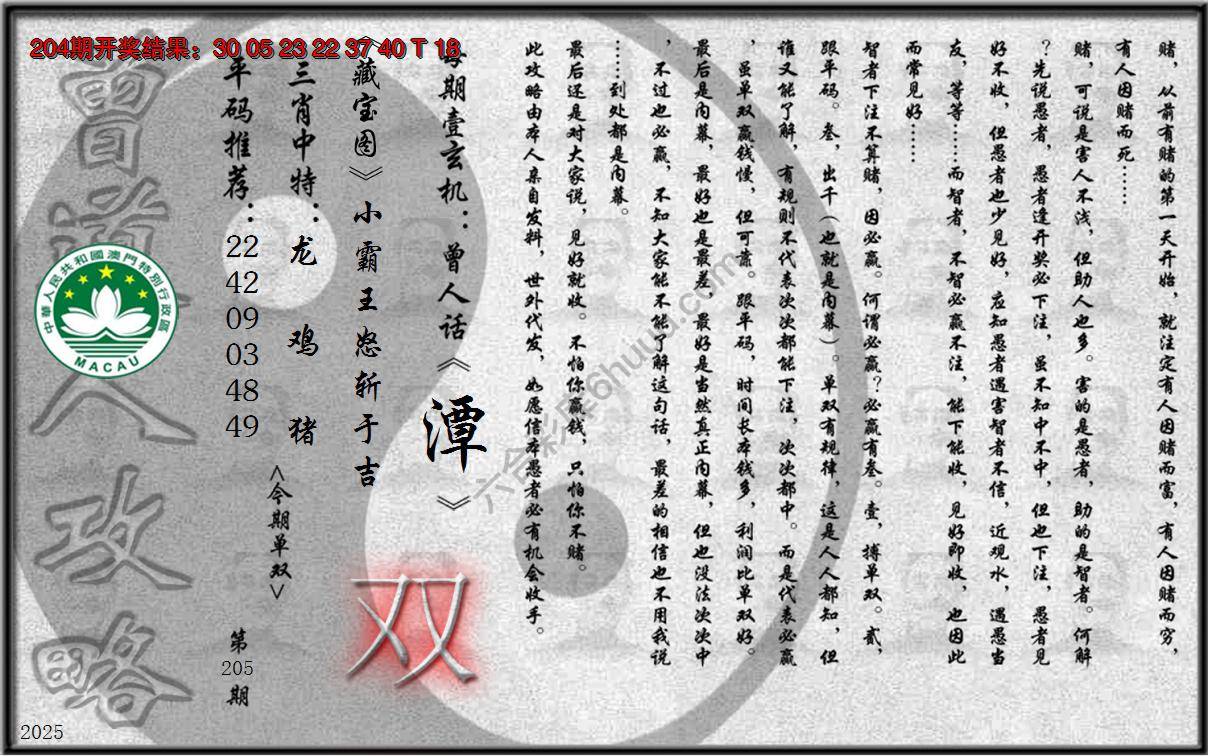 204期开奖结果：30 05 23 22 37 40 T 18
赌，从前有赌的第一天开始，就注定有人因赌而富，有人因赌而穷，
有人因赌而死……
赌，可说是害人不浅，但助人也多。害的是愚者，助的是智者。何解
？先说愚者，愚者逢开奖必下注，虽不知中不中，但也下注，愚者见
好不收，但愚者也少见好，应知愚者遇害智者不信，近观水，遇愚当
友，等等……而智者，不智必赢不注，能下能收，见好即收，也因此
而常见好……
智者下注不算赌，因必赢。何谓必赢？必赢有叁。壹，搏单双。贰，
跟平码。叁，出千（也就是内幕）。单双有规律，这是人人都知，但
谁又能了解，有规则不代表次次都能下注，次次都中。而是代表必赢
，虽单双赢钱慢，但可靠。跟平码，时间长本钱多，利润比单双好。
最后是内幕，最好也是最差，最好是当然真正内幕，但也没法次次中
，不过也必赢，不知大家能不能了解这句话，最差的相信也不用我说
……到处都是内幕。
最后还是对大家说，见好就收。不怕你赢钱，只怕你不赌。
此攻略由本人亲自发料，世外代发，如愿信本愚者必有机会收手。
每期壹玄机：曾人话《潭》
《藏宝图》小霸王怒斩于吉
三肖中特：龙 鸡 猪
<今期单双>
双
平码推荐：
22
42
09
03
48
49
第
205
期
曾道人攻略
中華人民共和國澳門特別行政區
MACAU
2025